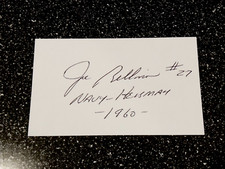 Joe Bellino #27
NAVY-HEISMAN
-1960-